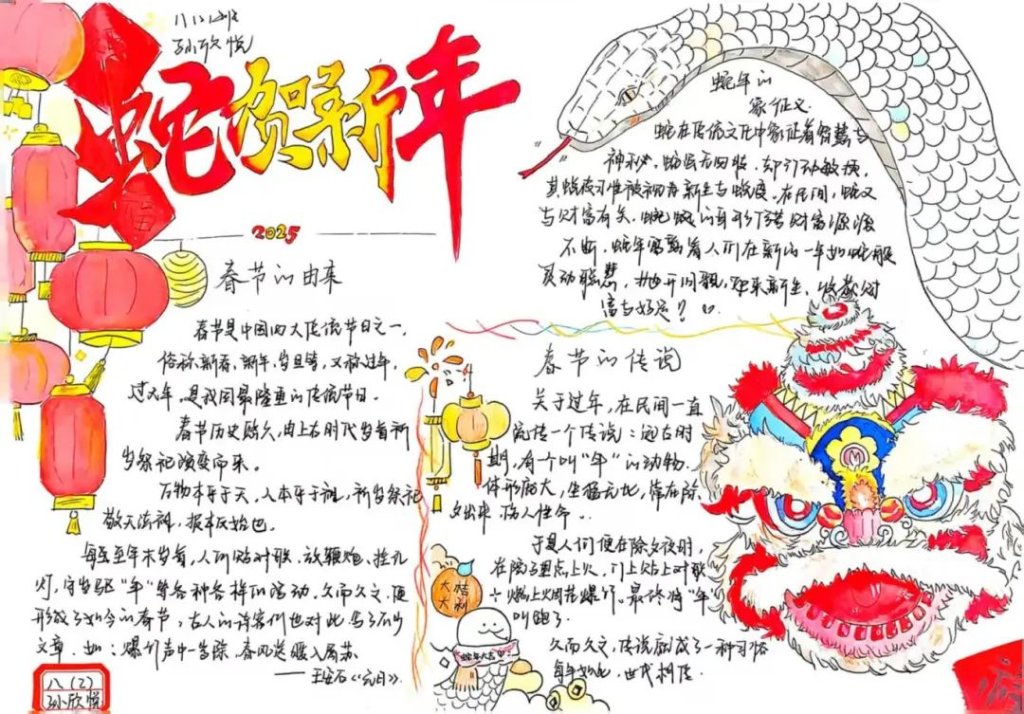 八(2)班
孙欣悦
蛇贺新年
2025
春节的由来
春节是中国四大传统节日之一,
俗称新春、新年、岁旦等,又称过年,
过大年,是我国最隆重的传统节日。
春节历史悠久,由上古时代岁首祈
岁祭祀演变而来。
万物本乎于天,人本乎于祖,祈岁祭祀
敬天法祖,报本反始也。
每至年末岁首,人们贴对联、放鞭炮、挂孔
灯,守岁驱"年"等各种各样的活动,久而久之,便
形成了如今的春节;古人的许多诗也对此写了不少
文章.如:爆竹声中一岁除,春风送暖入屠苏.
——王安石《元日》.
八(2)
孙欣悦
蛇年的
象征义
蛇在传统文化中象征着智慧与
神秘,蛇虽无四肢,却行动敏捷,
其蜕皮习性被视为新生与蜕变.在民间,蛇又
与财富有关,蜿蜒的身形
财富源源
不断,蛇年寓意着人们在新的一年如蛇般
灵动聪慧,
开问题,迎来新生、收获财
富与好运!
春节的传说
关于过年,在民间一直
流传一个传说:远古时
期,有一个叫"年"的动物.
体形庞大,坐猛无比,常在除
夕出来,伤人性命..
于是人们便在除夕夜时,
在院子里点上火,门上贴上对联
,
爆竹,最终将"年"
叫跑了.
久而久之,传说就成了一种习俗
每年如此,世代相传.
大吉
大利
蛇年大吉
福
福